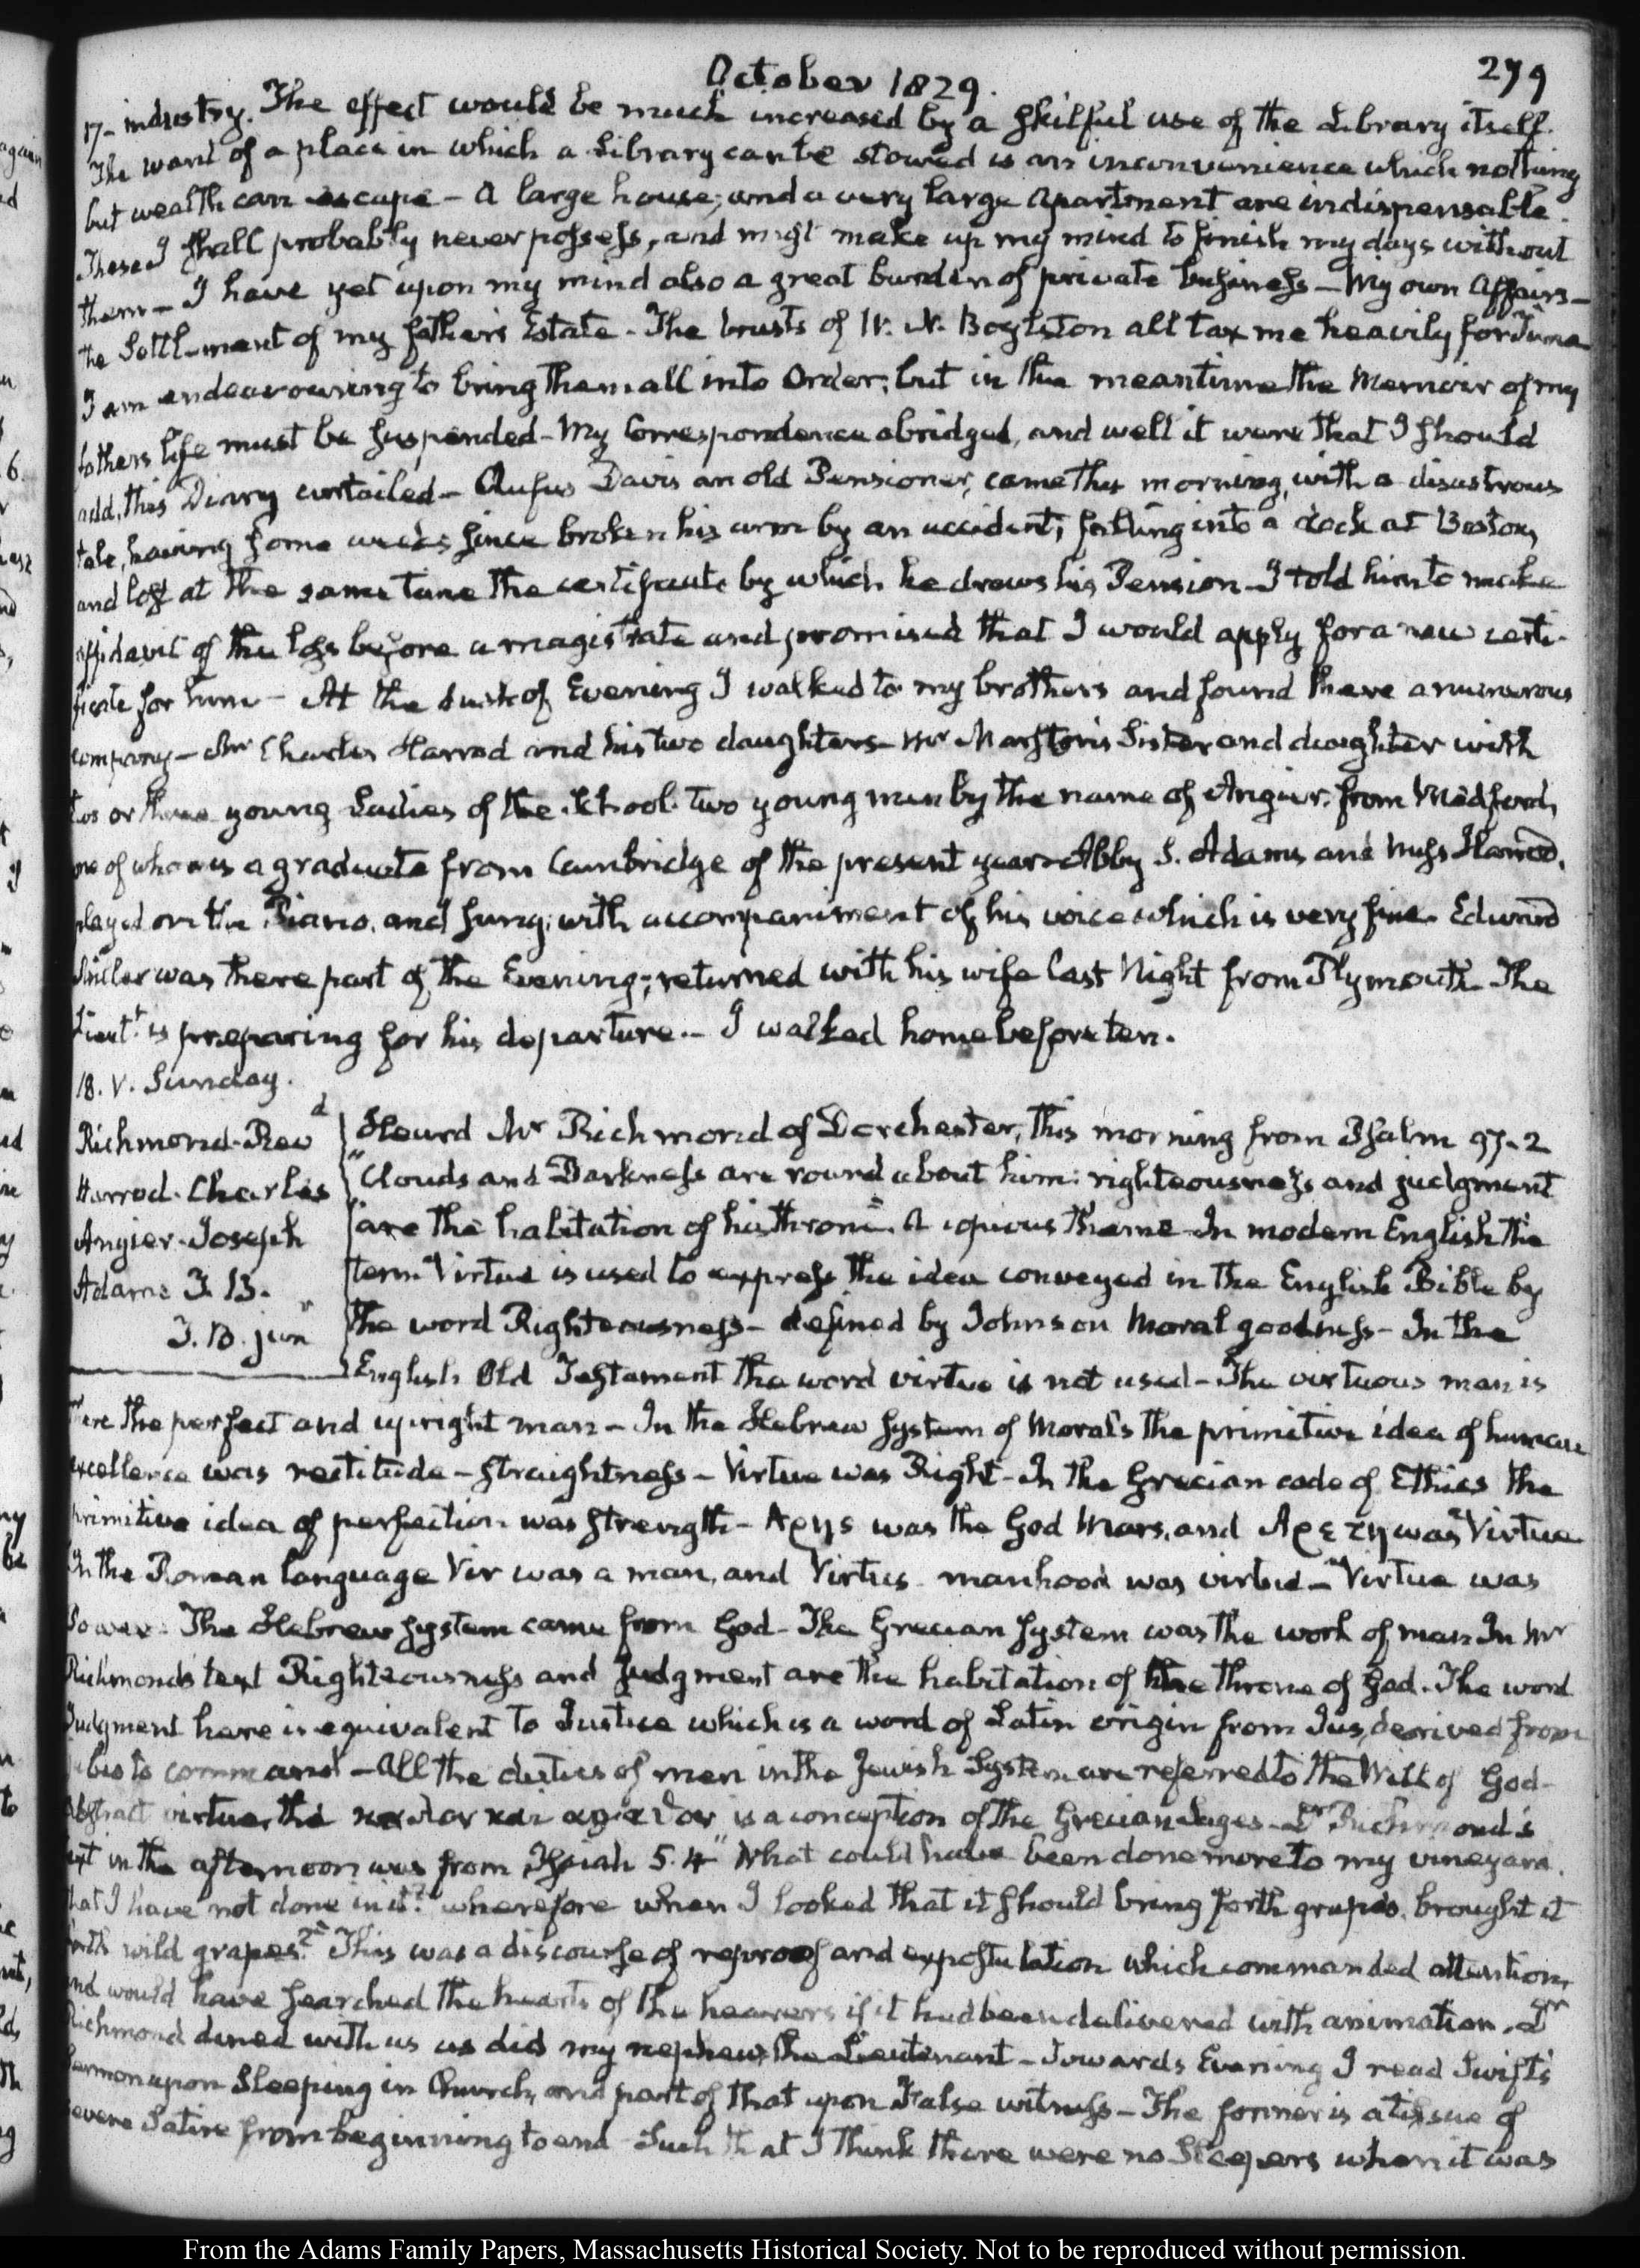 October 1829.
279
17- industry. The effect would be much increased by a skilful use of the Library itself.
The want of a place in which a Library can be stowed is an inconvenience which nothing
but wealth can escape - A large house, and a very large apartment are indispensable.
These I shall probably never possess, and must make up my mind to finish my days without
them - I have yet upon my mind also a great burden of private business - My own Affairs -
the Settlement of my father's Estate - The trusts of W. N. Boylston all tax me heavily for Time
I am endeavouring to bring them all into Order; but in the meantime the Memoir of my
fathers life must be suspended - My Correspondence abridged, and well it were that I should
add, this Diary curtailed - Rufus Davis an old Pensioner, came this morning, with a disastrous
tale, having some weeks since broken his arm by an accident; falling into a dock at Boston,
and lost at the same time the certificate by which he draws his Pension - I told him to make
affidavit of the loss before a magistrate and promised that I would apply for a new certi-
ficate for him - At the dusk of Evening I walked to my brothers and found there a numerous
company - Mr Charles Harrod and his two daughters - Mr Marston's Sister and daughter with
two or three young Ladies of the School. two young men by the name of Angier, from Medford,
one of whom is a graduate from Cambridge of the present year - Abby S. Adams and Miss Harrod,
played on the Piano, and sung; with accompaniment of his voice which is very fine. Edward
Miller was there part of the Evening; returned with his wife last Night from Plymouth. The
Lieutt. is preparing for his departure. - I walked home before ten.
18. V. Sunday.
Richmond. Revd
Harrod. Charles
Angier. Joseph
Adams J. B.
" J. B. jun
Heard Mr Richmond of Dorchester, this morning from Psalm 97.2
"Clouds and Darkness are round about him: righteousness and judgment
"are the habitation of his throne". A copious theme - In modern English the
term Virtue is used to express the idea conveyed in the English Bible by
the word Righteousness - defined by Johnson Moral goodness - In the
English Old Testament the word virtue is not used - The virtuous man is
there the perfect and upright man - In the Hebrew system of Morals the primitive idea of human
excellence was rectitude - straightness - Virtue was Right - In the Grecian code of Ethics the
primitive idea of perfection was strength - Αρης was the God Mars, and Αρετη was Virtue
In the Roman language Vir was a man, and Virtus - manhood was virtue - Virtue was
Power. The Hebrew system came from God - The Grecian system was the work of man In Mr
Richmond's text Righteousness and Judgment are the habitation of the throne of God. The word
Judgment here is equivalent to Justice which is a word of Latin origin from Jus, derived from
jubeo to command - All the duties of men in the Jewish System are referred to the Will of God -
Abstract virtue, the καλον και αγαθον is a conception of the Grecian Sages - Mr Richmond's
text in the afternoon was from Isaiah 5. 4 "What could have been done more to my vineyard.
that I have not done in it? wherefore when I looked that it should bring forth grapes, brought it
forth wild grapes?" This was a discourse of reproof and expostulation which commanded attention,
and would have searched the hearts of the hearers if it had been delivered with animation. Mr
Richmond dined with us as did my nephew, the Lieutenant - Towards Evening I read Swift's
Sermon upon Sleeping in Church, and part of that upon False witness - The former is a tissue of
severe Satire from beginning to end - Such that I think there were no Sleepers when it was
From the Adams Family Papers, Massachusetts Historical Society. Not to be reproduced without permission.